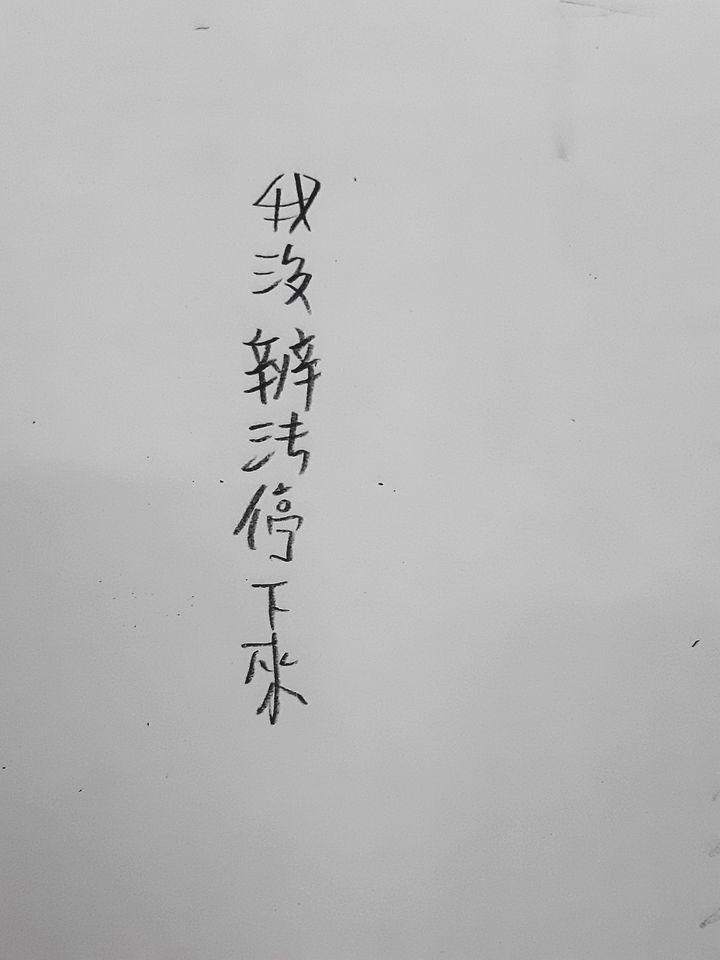 我沒辦法停下來